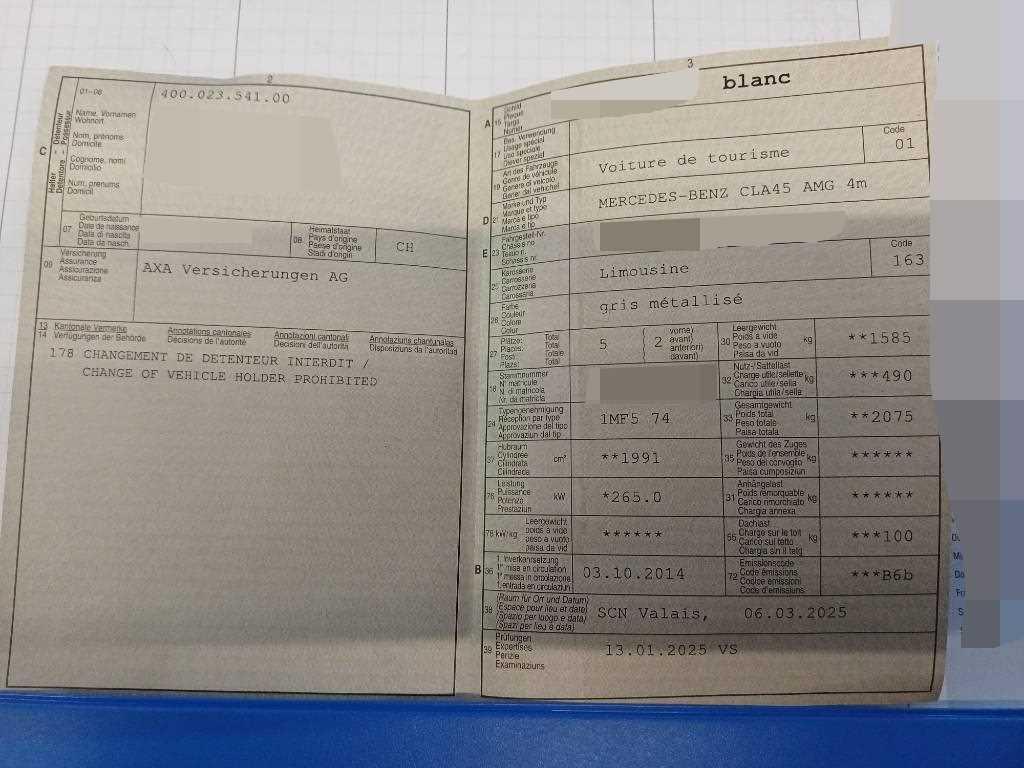 2
01-06
400.023.541.00
C
Halter
Détenteur
Detentore
Possessur
Name, Vornamen
Wohnort
Nom, prénoms
Domicile
Cognome, nomi
Domicilio
Num, prenums
Domicil
07
Geburtsdatum
Date de naissance
Data di nascita
Data da nasch.
08
Heimatstaat
Pays d'origine
Paese d'origine
Stadi d'origin
CH
09
Versicherung
Assurance
Assicurazione
Assicuranza
AXA Versicherungen AG
13
14
Kantonale Vermerke
Verfügungen der Behörde
Annotations cantonales
Décisions de l'autorité
Annotazioni cantonali
Decisioni dell'autorità
Annotaziuns chantunalas
Disposiziuns da l'autoritad
178 CHANGEMENT DE DETENTEUR INTERDIT /
CHANGE OF VEHICLE HOLDER PROHIBITED
3
A
15
Schild
Plaque
Targa
Numer
blanc
17
Bes. Verwendung
Usage spécial
Uso speciale
Diever spezial
19
Art des Fahrzeugs
Genre de véhicule
Genere di veicolo
Gener dal vehichel
Voiture de tourisme
Code
01
D
21
Marke und Typ
Marque et type
Marca e tipo
Marca e tip
MERCEDES-BENZ CLA45 AMG 4m
E
23
Fahrgestell-Nr.
Châssis no
Telaio n.
Schassis nr.
25
Karosserie
Carrosserie
Carrozzeria
Carossaria
Limousine
Code
163
26
Farbe
Couleur
Colore
Colur
gris métallisé
27
Plätze: Total
Places: Total
Posti: Totale
Plazs: Total
5
( 2
vorne)
avant)
anteriori)
davant)
30
Leergewicht
Poids à vide
Peso a vuoto
Paisa da vid
kg
**1585
18
Stammnummer
N° matricule
N. di matricola
Nr. da matricla
32
Nutz-/Sattellast
Charge utile/sellette
Carico utile/sella
Chargia utila/sella
kg
***490
24
Typengenehmigung
Réception par type
Approvazione del tipo
Approvaziun dal tip
1MF5 74
33
Gesamtgewicht
Poids total
Peso totale
Paisa totala
kg
**2075
37
Hubraum
Cylindrée
Cilindrata
Cilindrada
cm³
**1991
35
Gewicht des Zuges
Poids de l'ensemble
Peso del convoglio
Paisa cumposiziun
kg
******
76
Leistung
Puissance
Potenza
Prestaziun
kW
*265.0
31
Anhängelast
Poids remorquable
Carico rimorchiato
Chargia annexa
kg
******
78
kW/kg
Leergewicht
poids à vide
peso a vuoto
paisa da vid
******
55
Dachlast
Charge sur le toit
Carico sul tetto
Chargia sin il tetg
kg
***100
B
36
1. Inverkehrsetzung
1re mise en circulation
1a messa in circolazione
1. entrada en circulaziun
03.10.2014
72
Emissionscode
Code émissions
Codice emissioni
Code d'emissiuns
***B6b
38
(Raum für Ort und Datum)
(Espace pour lieu et date)
(Spazio per luogo e data)
(Spazi per lieu e data)
SCN Valais, 06.03.2025
39
Prüfungen
Expertises
Perizie
Examinaziuns
13.01.2025 VS